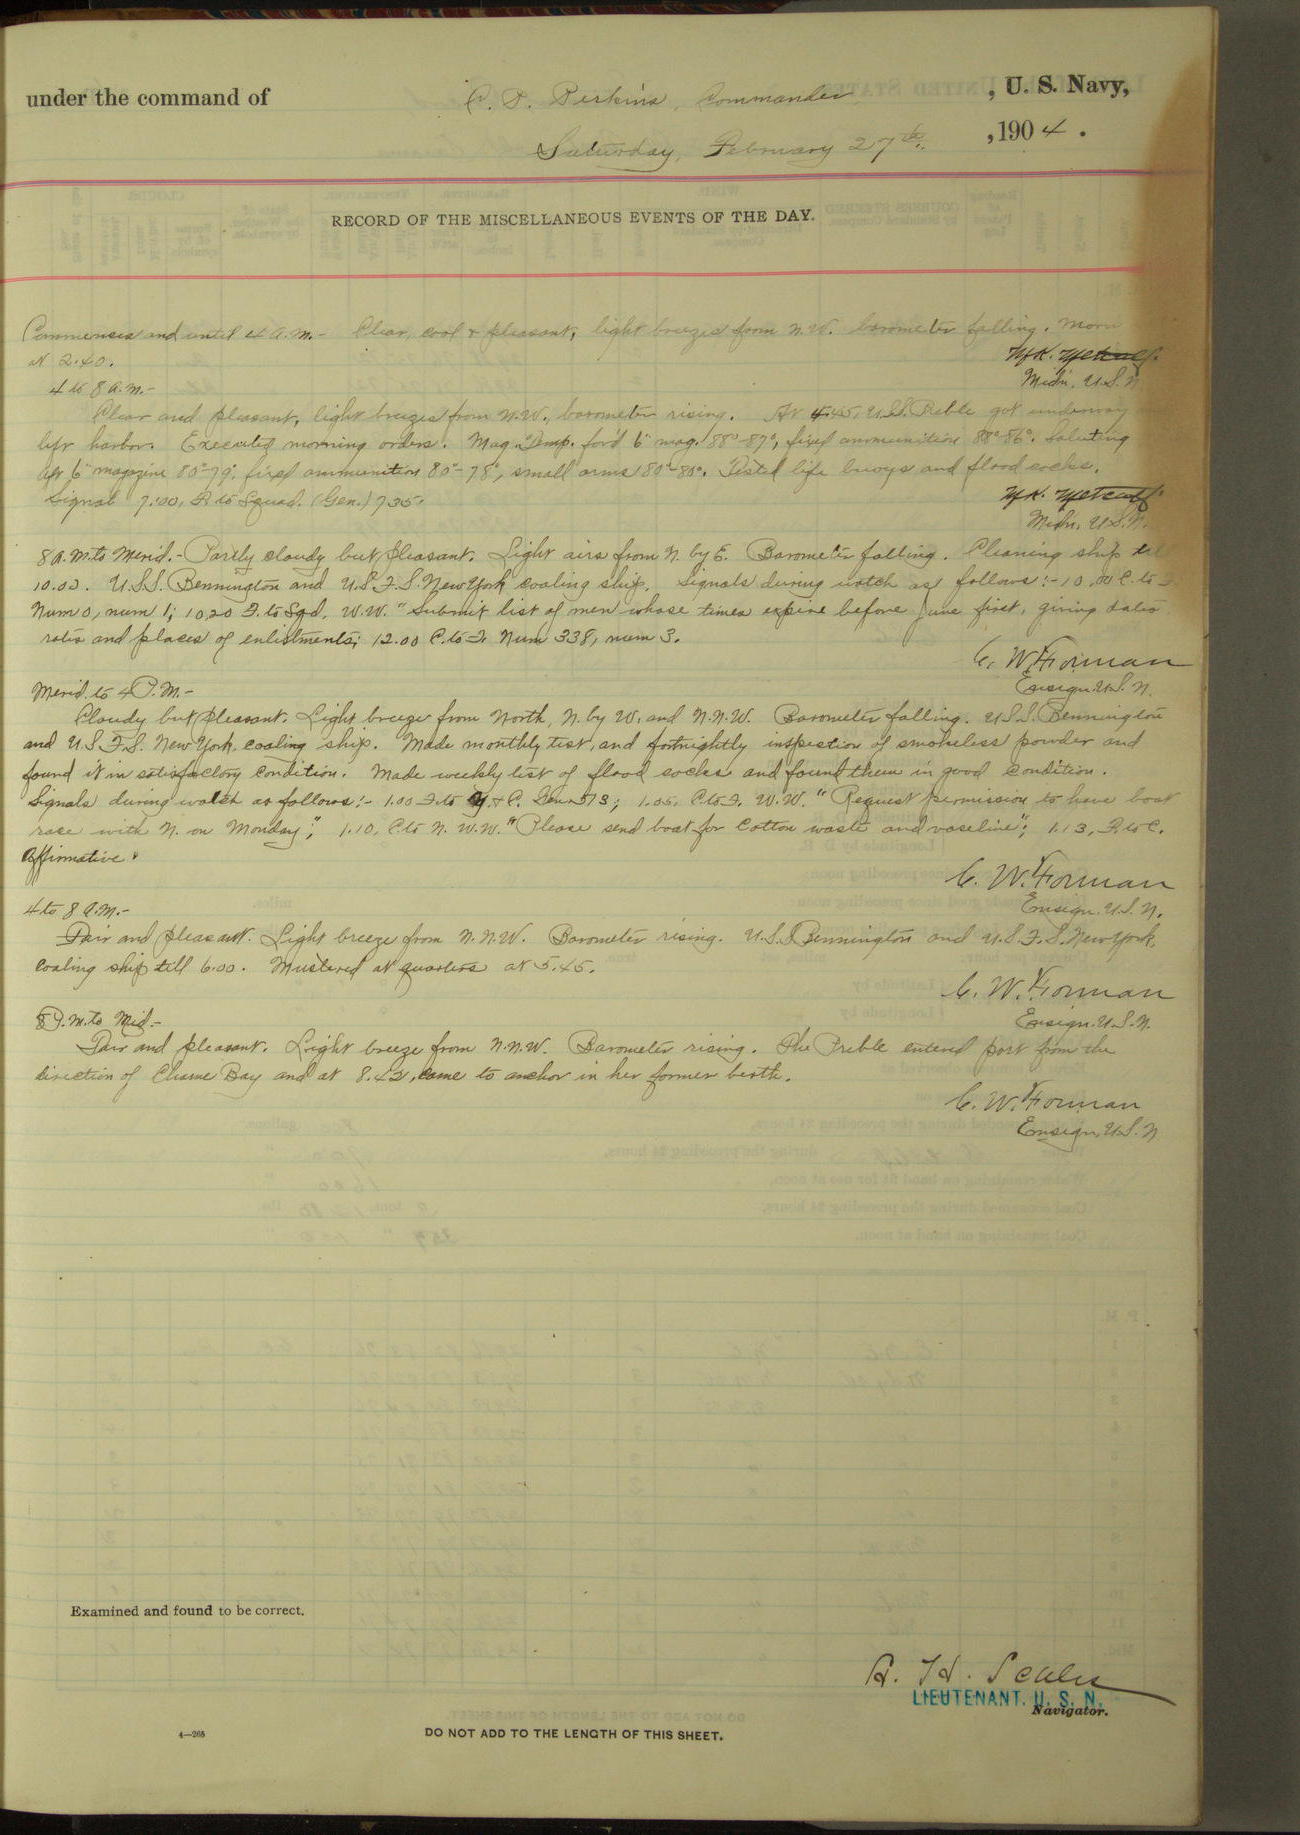 under the command of C. P. Perkins, Commander, U. S. Navy,
Saturday, February 27th, 1904.
RECORD OF THE MISCELLANEOUS EVENTS OF THE DAY.
Commences and until 4 A.M.- Clear, cool & pleasant, light breezes from N.W. barometer falling. Moon
at 2.40.
M.K. Metcalf.
Midn, U.S.N.
4 to 8 A.M.-
Clear and pleasant, light breezes from N.W., barometer rising. At 4.45, U.S.S. Preble got underway
left harbor. Executed morning orders. Mag. Temp. for'd 6" mag. 88°-87°, fixed ammunition 88°-86°. Saluting
aft 6" magazine 80°-79°, fixed ammunition 80°-78°, small arms 80°-80°. Tested life buoys and flood cocks.
Signal 7:00, F. to Squad. (Gen.) 735.
M.K. Metcalf
Midn, U.S.N.
8 A.M. to Merid.- Partly cloudy but pleasant. Light airs from N. by E. Barometer falling. Cleaning ship till
10.00. U.S.S. Bennington and U.S.F.S. New York coaling ship. Signals during watch as follows:- 10.00 C. to F.
Num 0, num 1; 10.20 F. to Sqd. W.W. "Submit list of men whose times expire before June first, giving dates
rates and places of enlistments; 12.00 C. to F. Num 338, num 3.
C. W. Forman
Ensign. U.S.N.
Merid. to 4 P.M.-
Cloudy but pleasant. Light breeze from North, N. by W. and N.N.W. Barometer falling. U.S.S. Bennington
and U.S.F.S. New York, coaling ship. Made monthly test, and fortnightly inspection of smokeless powder and
found it in satisfactory condition. Made weekly test of flood cocks and found them in good condition.
Signals during watch as follows:- 1.00 F. to Y. & C. Gen. 513; 1.05, C. to F. W.W. "Request permission to have boat
race with N. on Monday"; 1.10, C. to N. W.W. "Please send boat for cotton waste and vaseline"; 1.13, F. to C.
Affirmative.
C. W. Forman
Ensign. U.S.N.
4 to 8 P.M.-
Fair and pleasant. Light breeze from N.N.W. Barometer rising. U.S.S. Bennington and U.S.F.S. New York,
coaling ship till 6.00. Mustered at quarters at 5.45.
C. W. Forman
Ensign. U.S.N.
8 P.M. to Mid.-
Fair and pleasant. Light breeze from N.N.W. Barometer rising. The Preble entered port from the
direction of Chame Bay and at 8.42, came to anchor in her former berth.
C. W. Forman
Ensign, U.S.N
Examined and found to be correct.
A. H. Scales
LIEUTENANT. U. S. N.
Navigator.
4—265
DO NOT ADD TO THE LENGTH OF THIS SHEET.